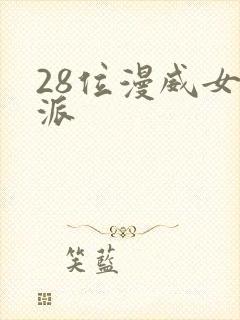 28位漫威女
派
笑蓝